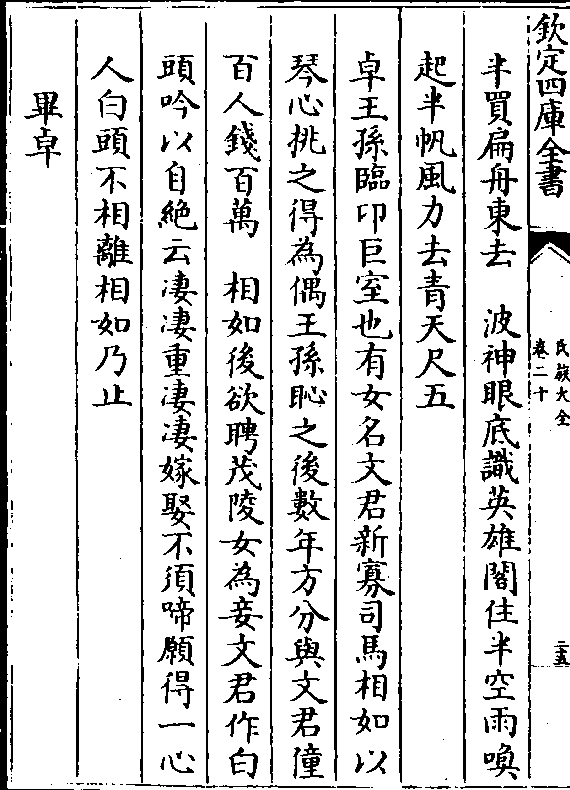 欽定四庫全書
氏族大全
卷二十
二十五
半買扁舟東去　波神眼底識英雄閣住半空雨喚
起半帆風力去青天尺五
卓王孫臨卬巨室也有女名文君新寡司馬相如以
琴心挑之得為偶王孫恥之後數年方分與文君僮
百人錢百萬　相如後欲聘茂陵女為妾文君作白
頭吟以自絶云凄凄重凄凄嫁娶不須啼願得一心
人白頭不相離相如乃止
畢卓